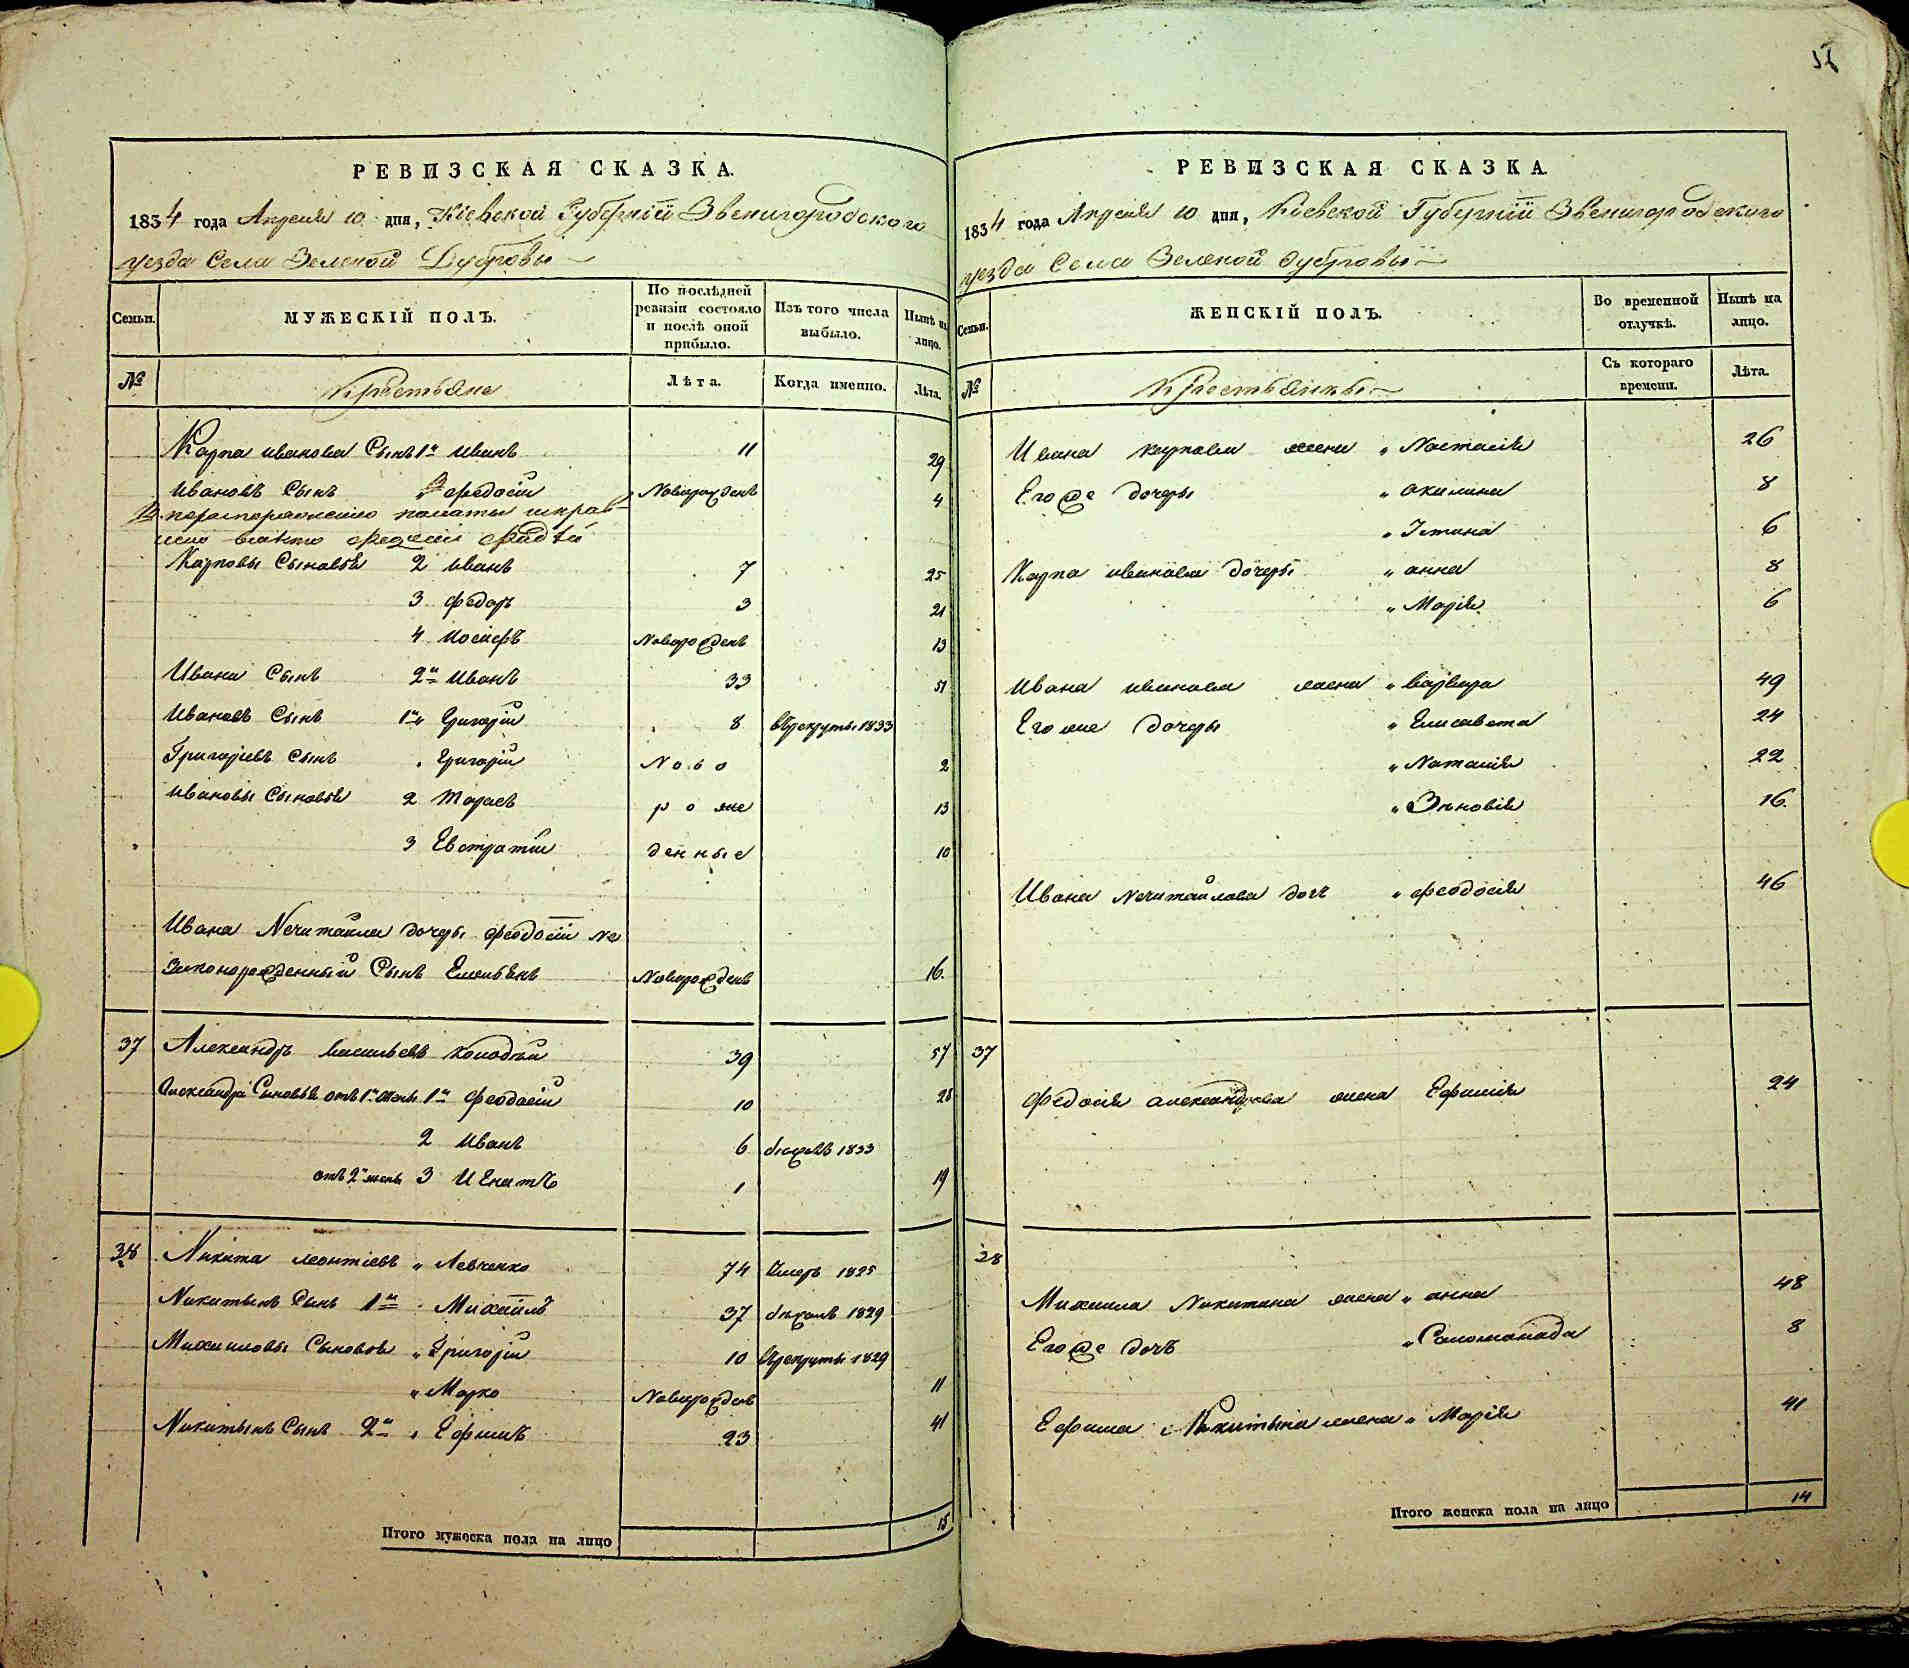 57
РЕВИЗСКАЯ СКАЗКА.
1834 года Апреля 10 дня, Кіевской Губерніи Звенигородского
уезда Села Зеленой Дубровы
Семьи.
МУЖЕСКІЙ ПОЛЪ.
По послѣдней ревизіи состояло и послѣ оной прибыло.
Изъ того числа выбыло.
Нынѣ на лицо.
№
Крестьяне
Лѣта.
Когда именно.
Лѣта.
Карпа иванова Сынъ 1й иванъ 11 29
ивановъ Сынъ федосій Новорожденъ 4
Карповы Сыновья 2 иванъ 7 25
3 федоръ 3 21
4 иосифъ Новорожденъ 13
Ивана Сынъ 2й иванъ 33 51
Ивановъ Сынъ 1й Григорій 8 въ рекруты 1833
Григоріевъ Сынъ Григорій Ново 2
ивановы Сыновья 2 Тарасъ рож 13
3 Евстратій денные 10
Ивана Нечитайла дочеры феодосіи не
законорожденный Сынъ Емельянъ Новорожденъ 16
37 Александръ васильевъ колодѣй 39 57
Александра Сыновья отъ 1й жены 1й феодосій 10 28
2 иванъ 6 бежалъ 1833
отъ 2й жены 3 Игнатъ 1 19
38 Никита леонтіевъ Левченко 74 Умеръ 1825
Никитынъ Сынъ 1й Михайлъ 37 бежалъ 1829
Михаиловы Сыновья Григорій 10 въ рекруты 1829
Марко Новорожденъ 11
Никитынъ Сынъ 2й Ефимъ 23 41
Итого мужеска пола на лицо 15
РЕВИЗСКАЯ СКАЗКА.
1834 года Апреля 10 дня, Кіевской Губерніи Звенигородского
уезда Села Зеленой дубровы
Семьи.
ЖЕНСКІЙ ПОЛЪ.
Во временной отлучкѣ.
Нынѣ на лицо.
№
Крестьянки
Съ котораго времени.
Лѣта.
Ивана карпова жена Настасія 26
Егоже дочеры акилина 8
Устина 6
Карпа иванова дочеры анна 8
Марія 6
Ивана иванова жена варвара 49
Его же дочеры Елисавета 24
Наталія 22
Зѣновія 16
Ивана Нечитайлова дочь феодосія 46
37
федосія александрова жена Ефимія 24
38
Михаила Никитина жена анна 48
Егоже дочь Саломонида 8
Ефима Никитына жена Марія 41
Итого женска пола на лицо 14